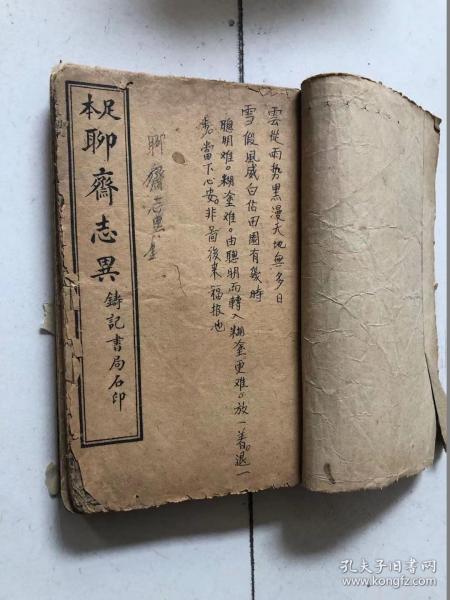 雲從雨势黑漫天地無多日
雪假風威白佔田園有幾時
聰明难。糊塗难。由聰明而轉入糊塗更难。放一着。退一
步。當下心安。非啚後来福报也
聊齋志異全
足本
聊齋志異
鑄記書局石印
孔夫子旧书网
www.kongfz.com